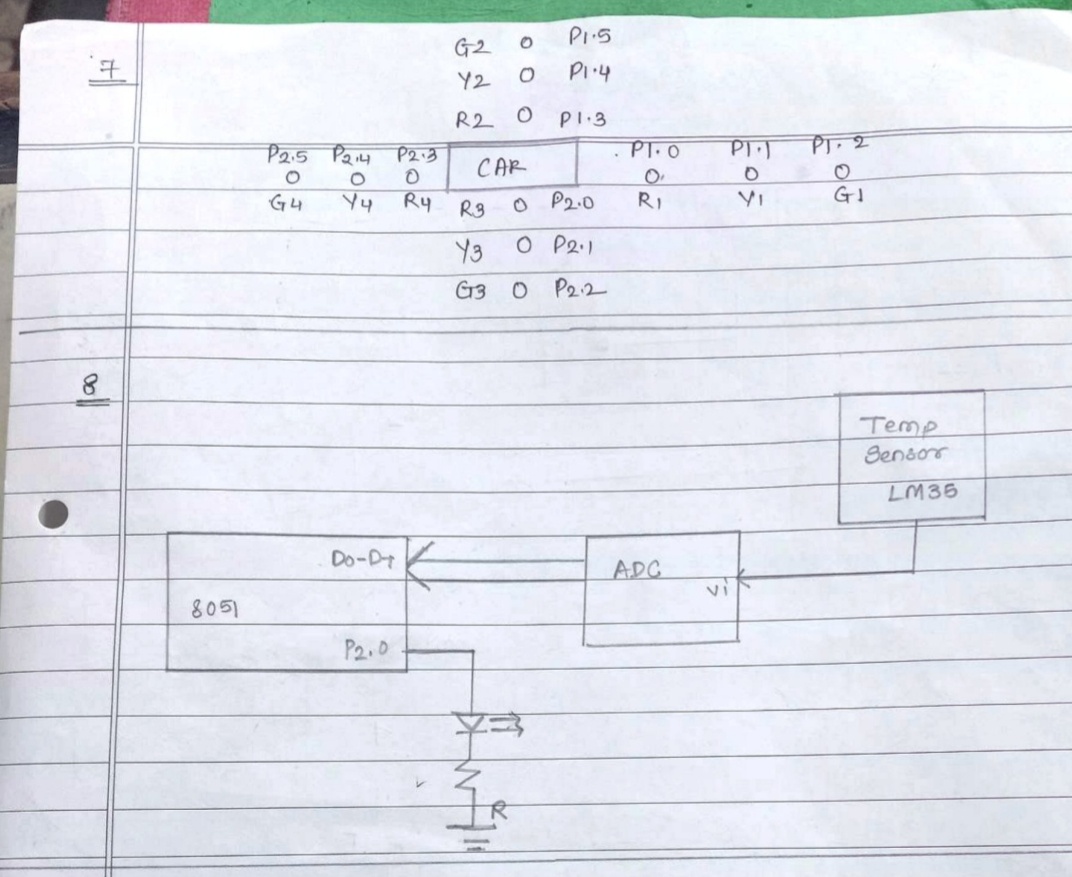 7
G2 O P1.5
Y2 O P1.4
R2 O P1.3
P2.5 P2.4 P2.3 CAR P1.0 P1.1 P1.2
O O O O O O
G4 Y4 R4 R3 O P2.0 R1 Y1 G1
Y3 O P2.1
G3 O P2.2
8
Temp
Sensor
LM35
D0-D7
ADC
Vi
8051
P2.0
R